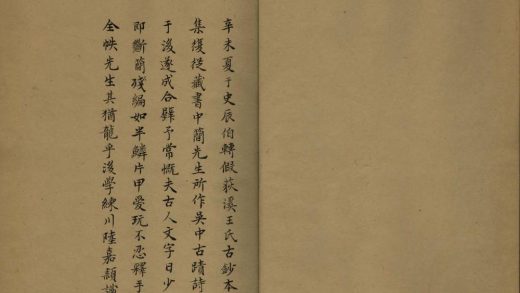 辛未夏于史辰伯轉假荻溪王氏古鈔本
集復從藏書中蕳先生所作吳中古蹟詩
于後遂成合璧予嘗慨夫古人文字日少
即斷蕳殘編如半鱗片甲愛玩不忍釋手
全帙先生其猶龍乎後學練川陸嘉頴識